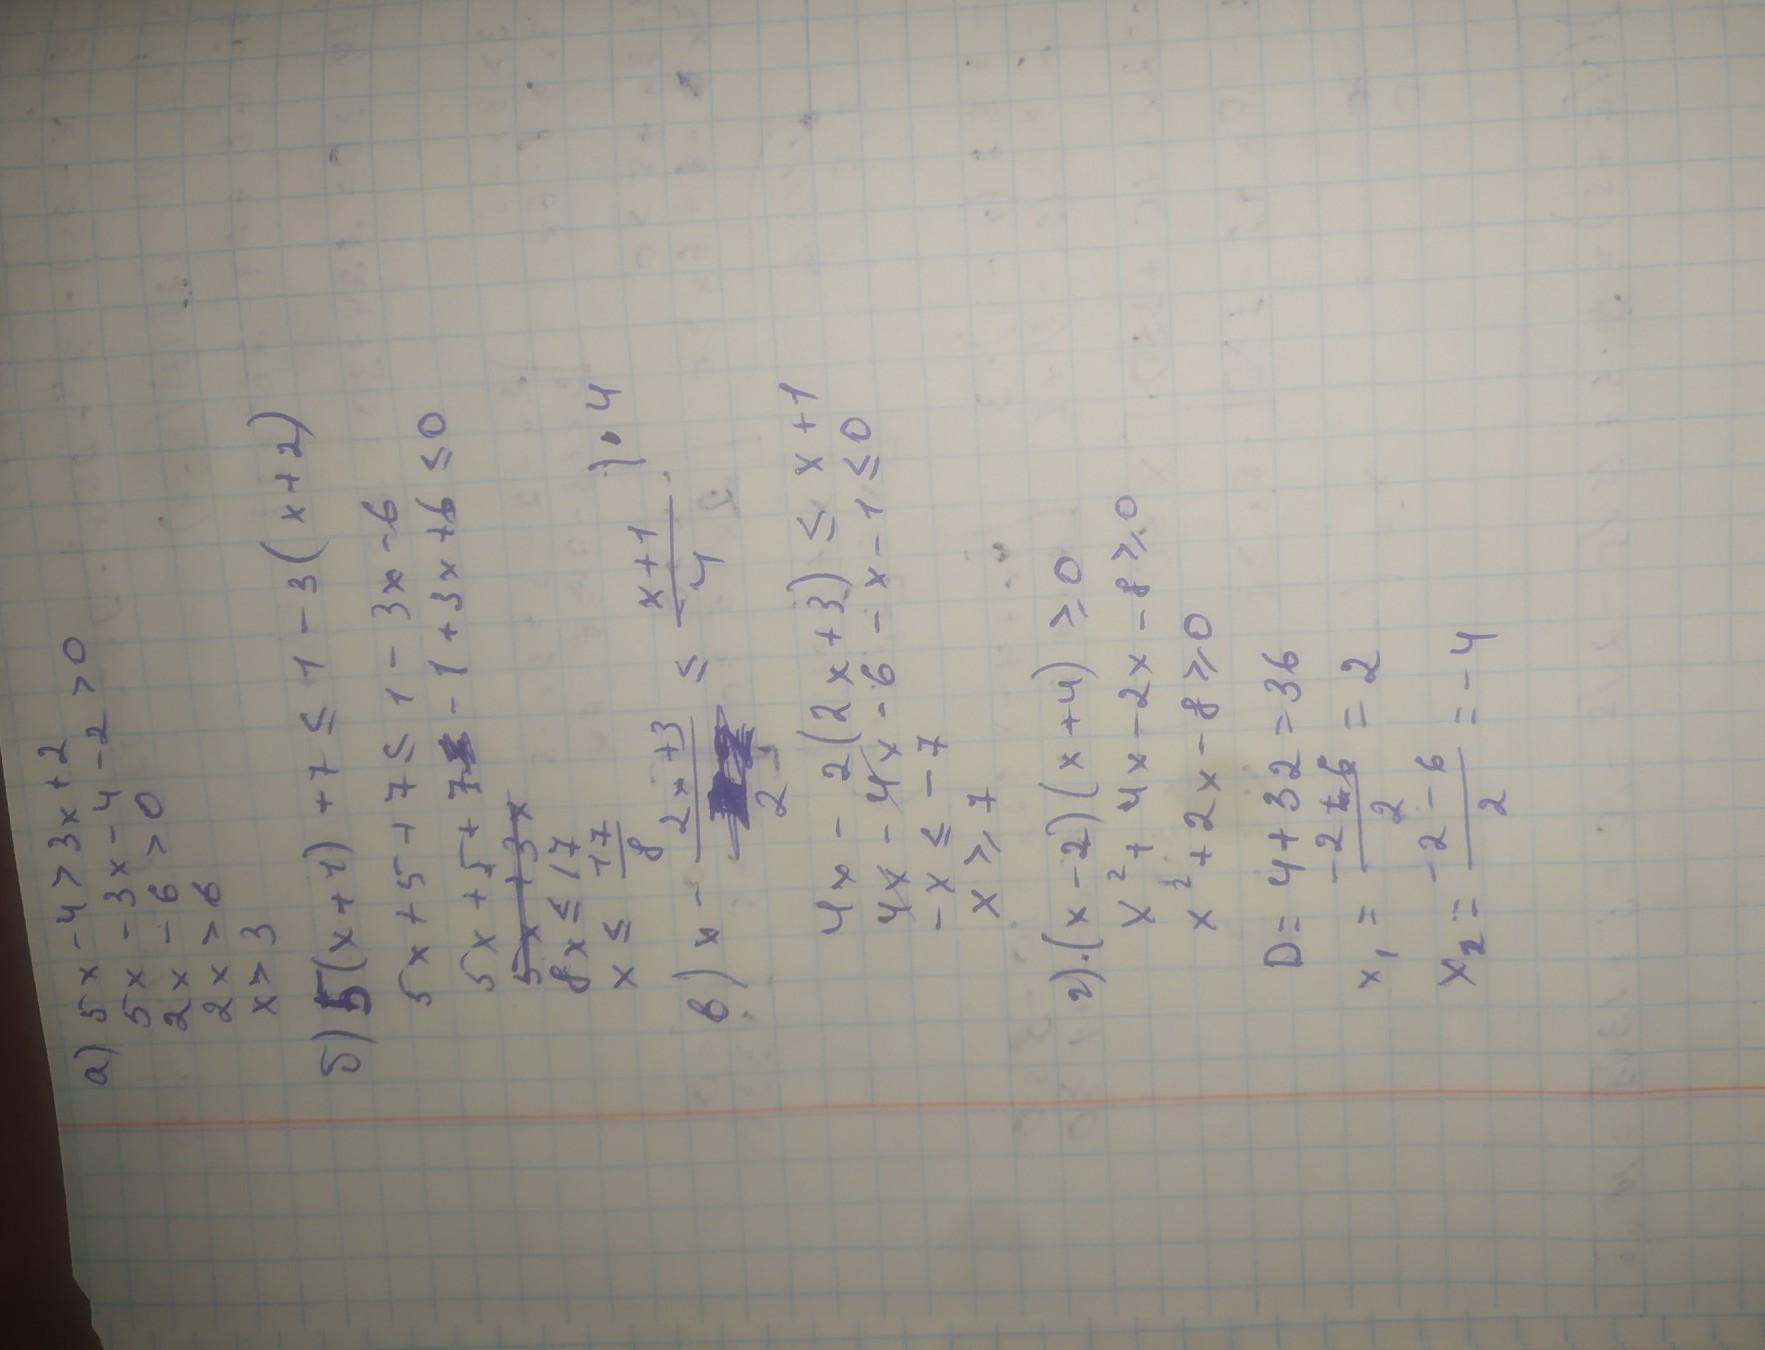 а) 5x - 4 > 3x + 2
5x - 3x - 4 - 2 > 0
2x - 6 > 0
2x > 6
x > 3
б) 5(x + 1) + 7 ≤ 1 - 3(x + 2)
5x + 5 + 7 ≤ 1 - 3x - 6
5x + 5 + 7 - 1 + 3x + 6 ≤ 0
5x + 3x
8x ≤ 17
x ≤ 17/8
в) x - (2x + 3)/2 ≤ (x + 1)/4 | • 4
4x - 2(2x + 3) ≤ x + 1
4x - 4x - 6 - x - 1 ≤ 0
-x ≤ -7
x ⩾ 7
г) (x - 2)(x + 4) ⩾ 0
x² + 4x - 2x - 8 ⩾ 0
x² + 2x - 8 ⩾ 0
D = 4 + 32 = 36
x₁ = (-2 + 6)/2 = 2
x₂ = (-2 - 6)/2 = -4